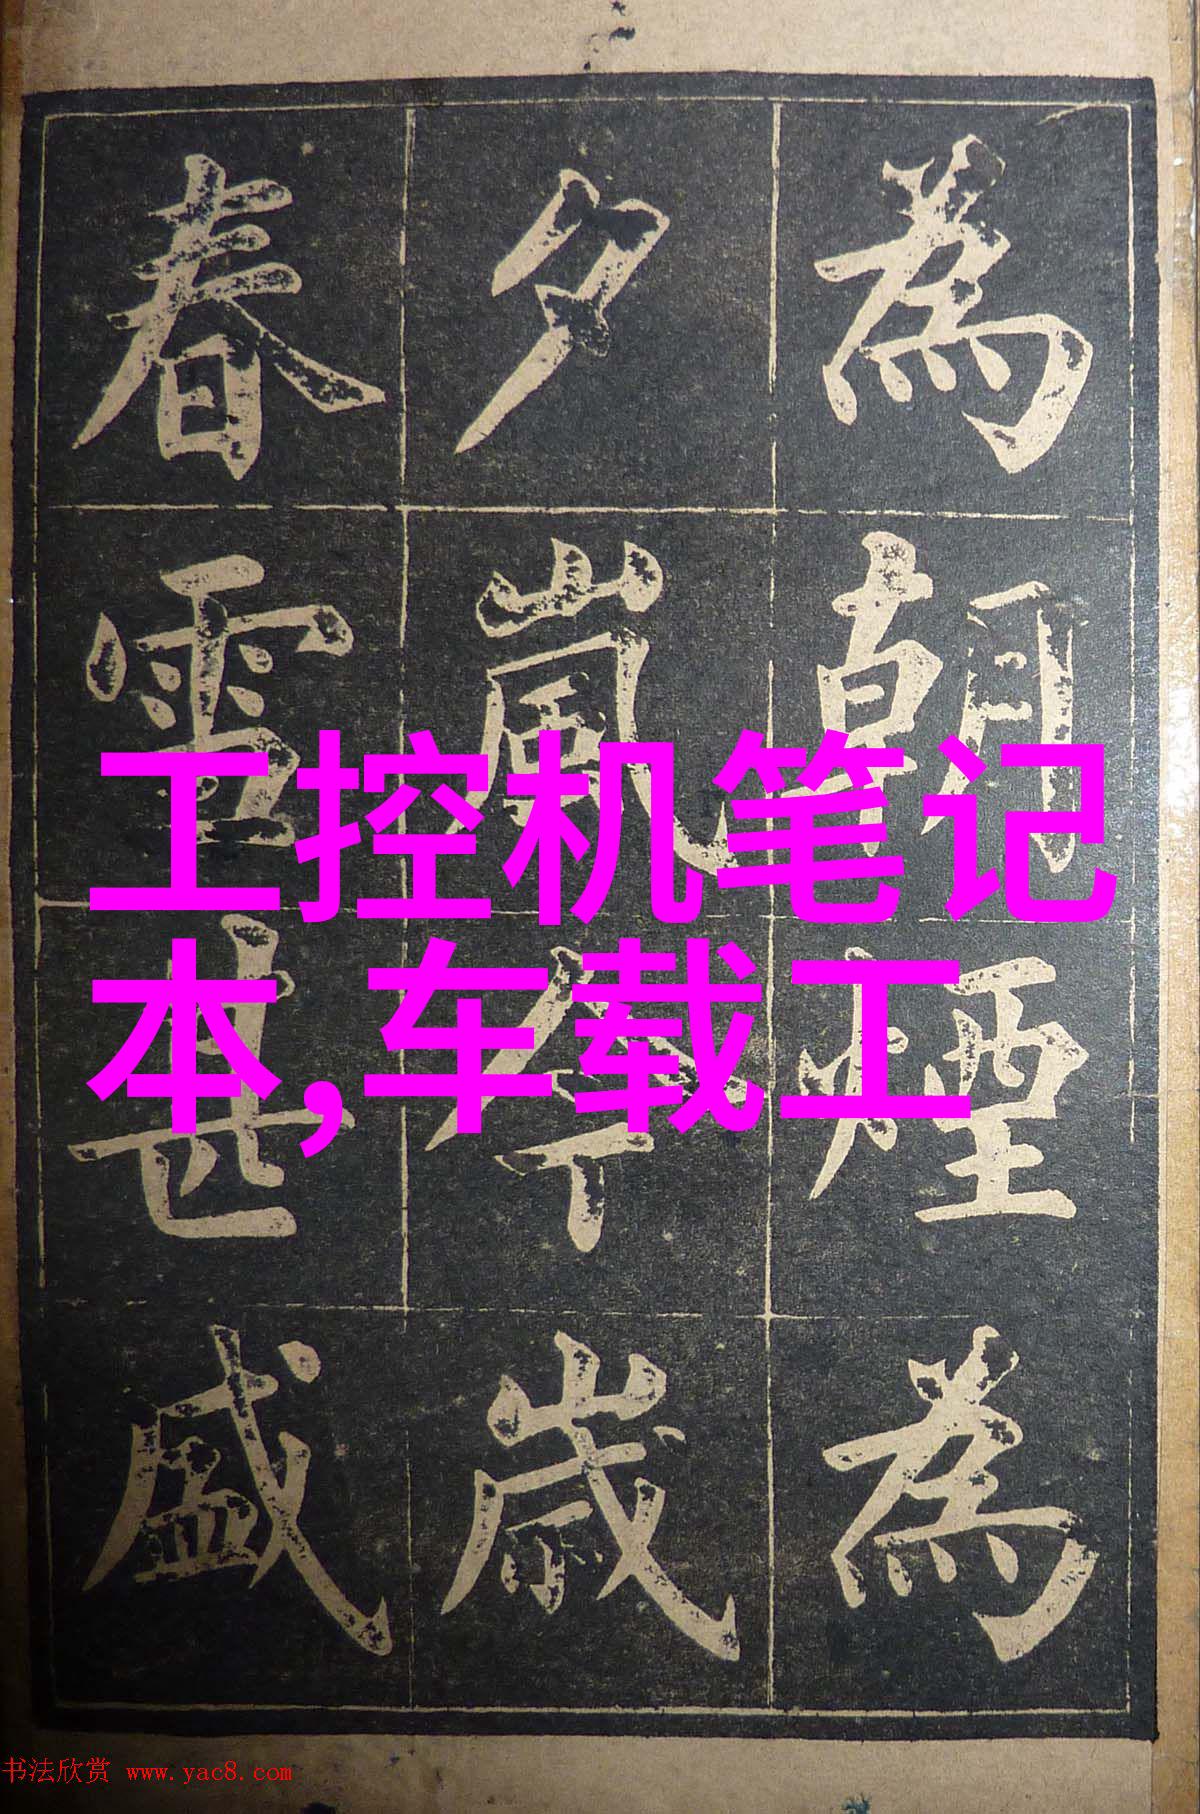 為朝煙為
夕嵐今歲
春雪甚盛
工控机笔记
本,车载工
书法欣赏 www.yac8.com